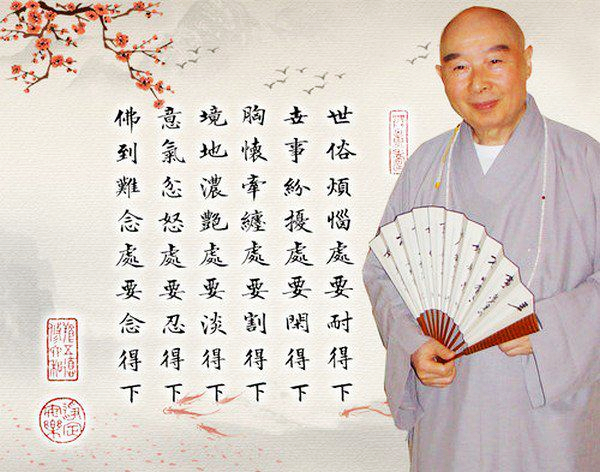 世俗煩惱處要耐得下
世事紛擾處要閑得下
胸懷牽纏處要割得下
境地濃艷處要淡得下
意氣忿怒處要忍得下
佛到難念處要念得下